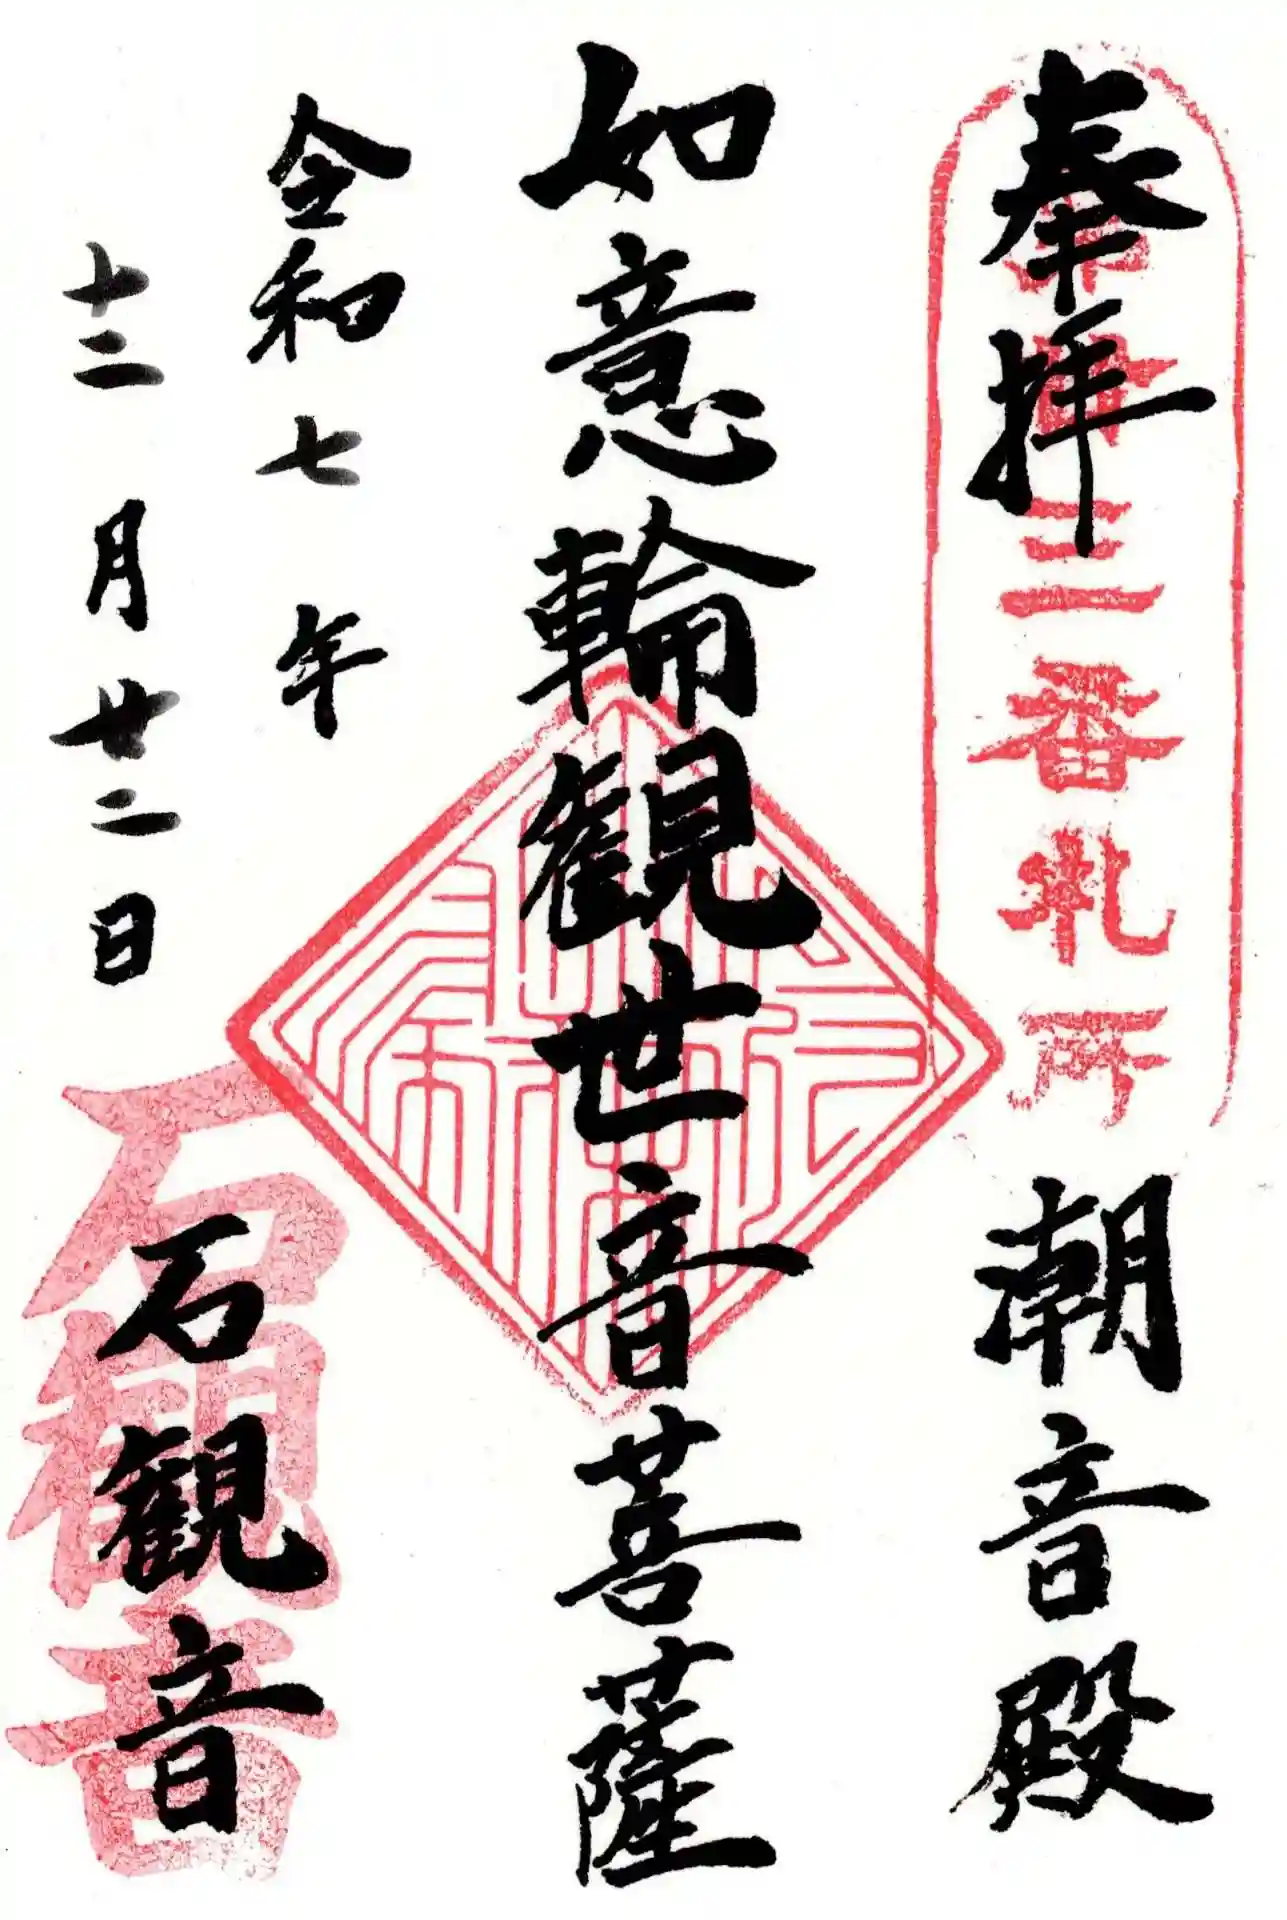 奉拝
三番札所
潮音殿
如意輪観世音菩薩
令和七年
十二月廿二日
石観音
石観音